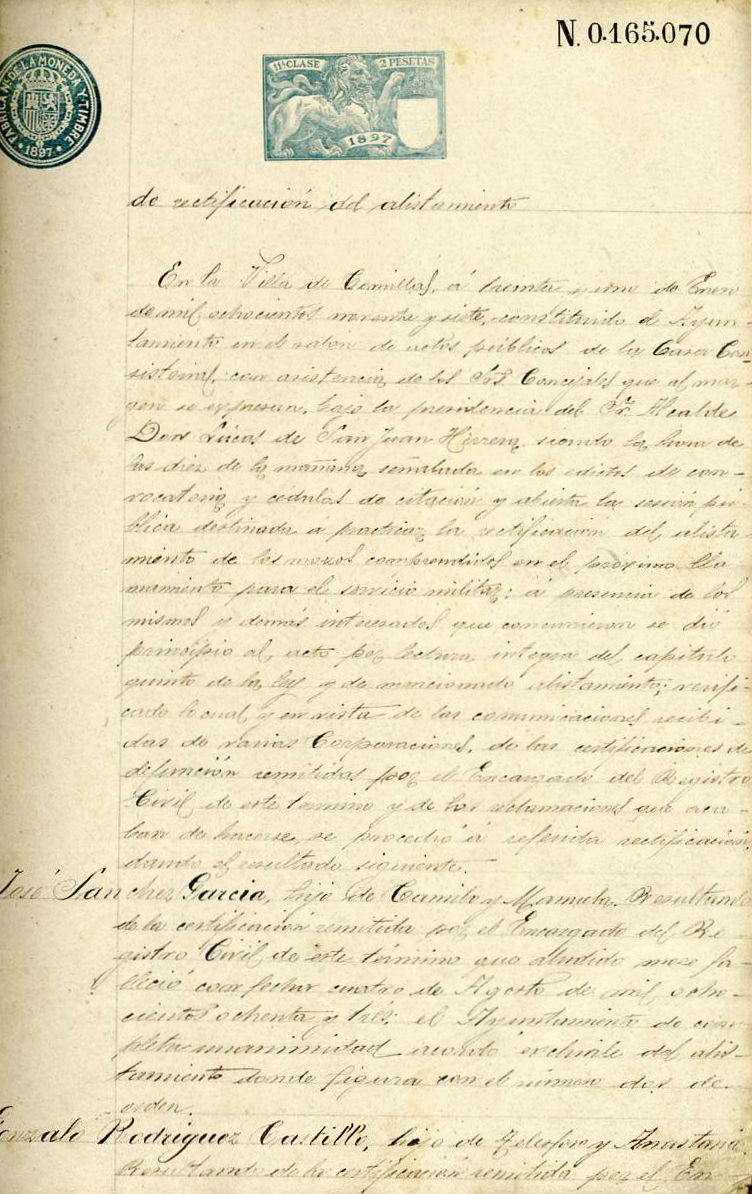 N. 0.165.070
FABRICA N. DE LA MONEDA Y TIMBRE
1897
11ª CLASE 2 PESETAS
1897
de rectificación del alistamiento
En la Villa de Comillas, á treinta y uno de Enero
de mil ochocientos noventa y siete, constituido el Ayun-
tamiento en el salon de actos públicos de la Casa Con-
sistorial, con asistencia de los Srs. Concejales que al mar-
gen se expresan, bajo la presidencia del Sr. Alcalde
Don Lúcas de San Juan Herrera, siendo la hora de
las diez de la mañana señalada en los edictos de con-
vocatoria y cédulas de citación y abierta la sesión pú-
blica destinada a practicar la rectificación del alista-
miento de los mozos comprendidos en el próximo lla-
mamiento para el servicio militar; á presencia de los
mismos y demás interesados que concurrieron se dió
principio al acto por lectura integra del capítulo
quinto de la ley y de mencionado alistamiento; verifi-
cado lo cual, y en vista de las comunicaciones recibi-
das de varias Corporaciones, de las certificaciones de
defunción remitidas por el Encargado del Registro
Civil de este termino y de las reclamaciones que aca-
ban de hacerse, se procedió á referida rectificación,
dando el resultado siguiente.
José Sanchez Garcia, hijo de Camilo y Manuela. Resultando
de la certificación remitida por el Encargado del Re-
gistro Civil de este término que aludido mozo fa-
lleció con fecha cuatro de Agosto de mil ocho-
cientos ochenta y tres; el Ayuntamiento de com-
pleta unanimidad acordó excluirle del alis-
tamiento donde figura con el número dos de
orden.
Gonzalo Rodriguez Castillo, hijo de Telesforo y Anastasia.
Resultando de la certificación remitida por el En-